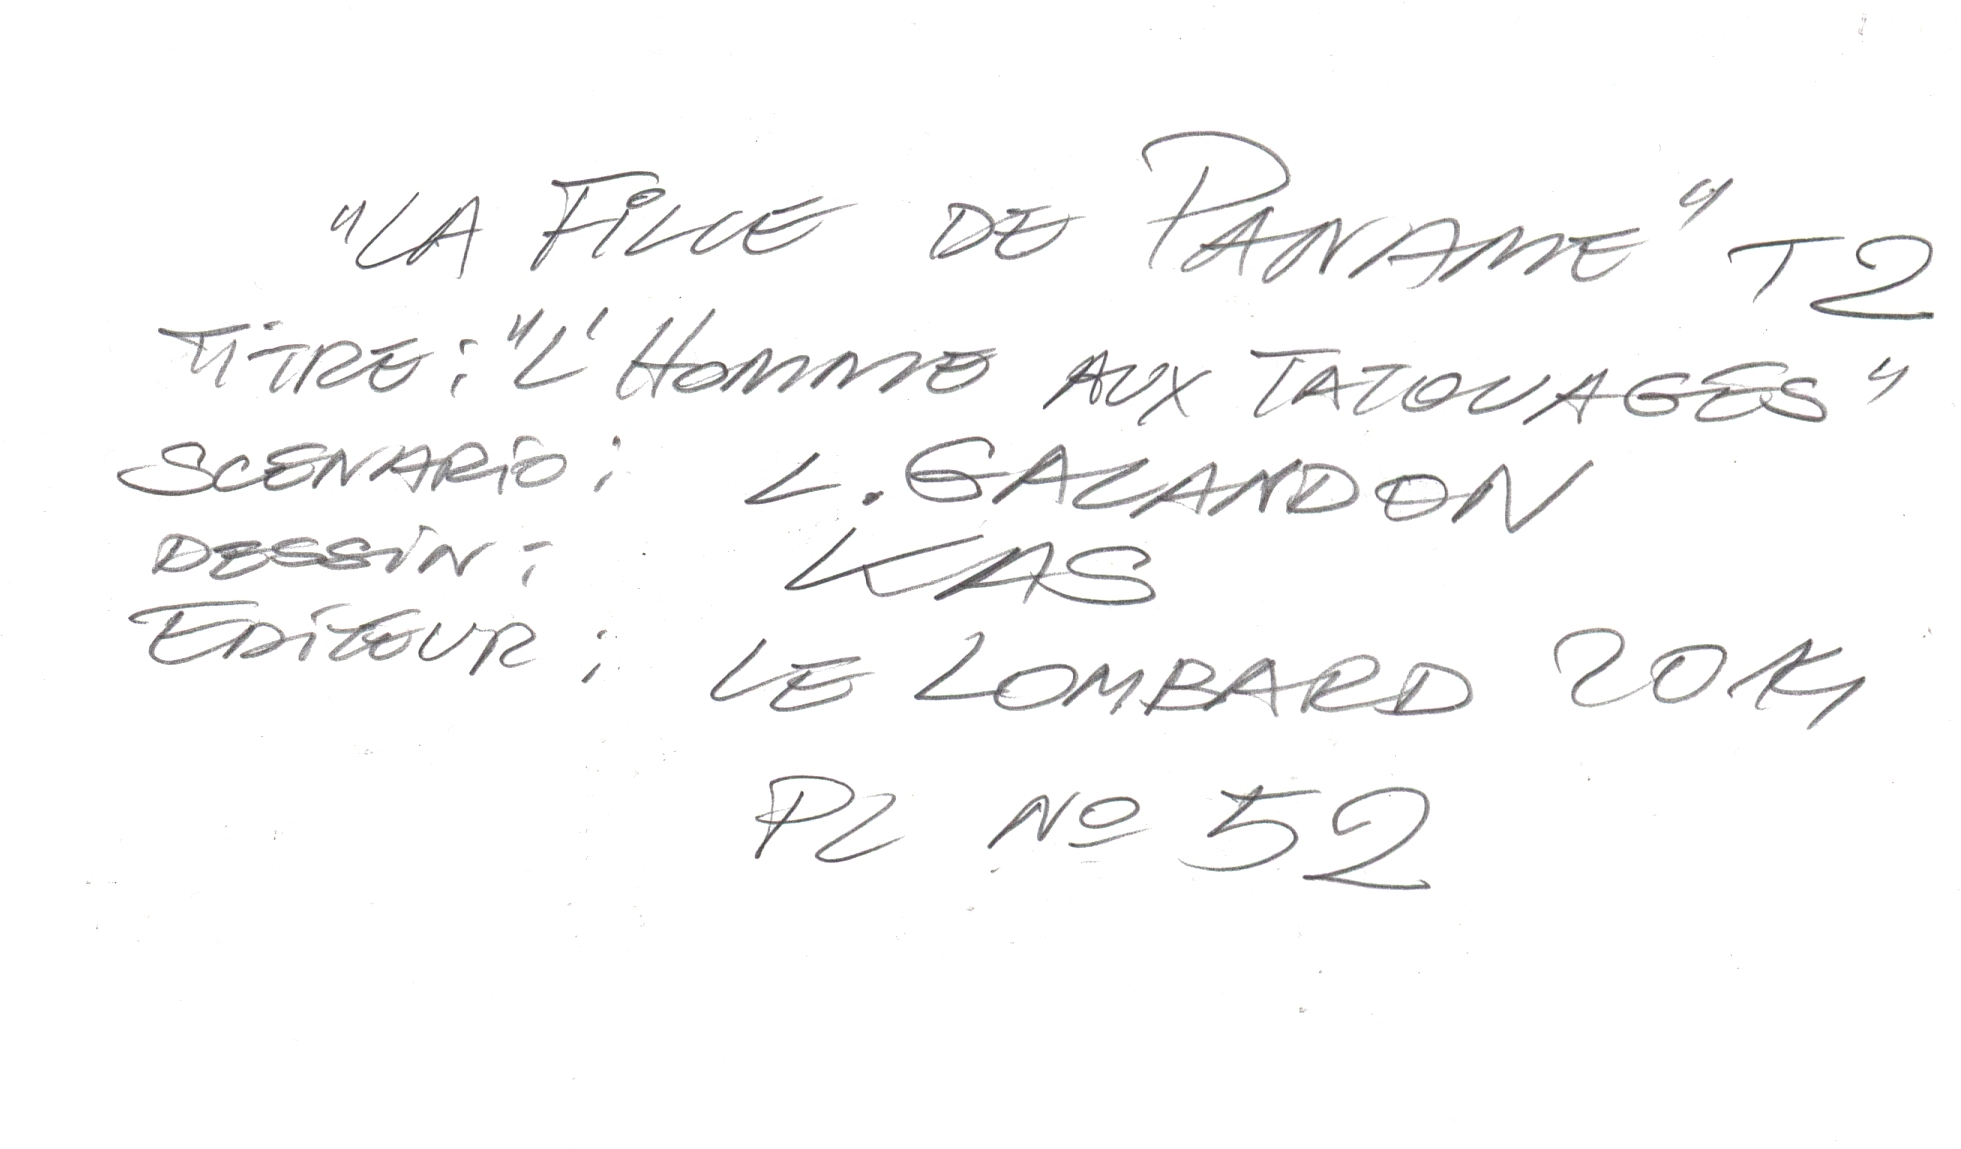 "LA FiLLE DE PANAME" T2
TiTRE : "L'HOMME AUX TATOUAGES"
SCENARiO : L. GALANDON
DESSiN : KAS
EDiTEUR : LE LOMBARD 2014
PL Nº 52